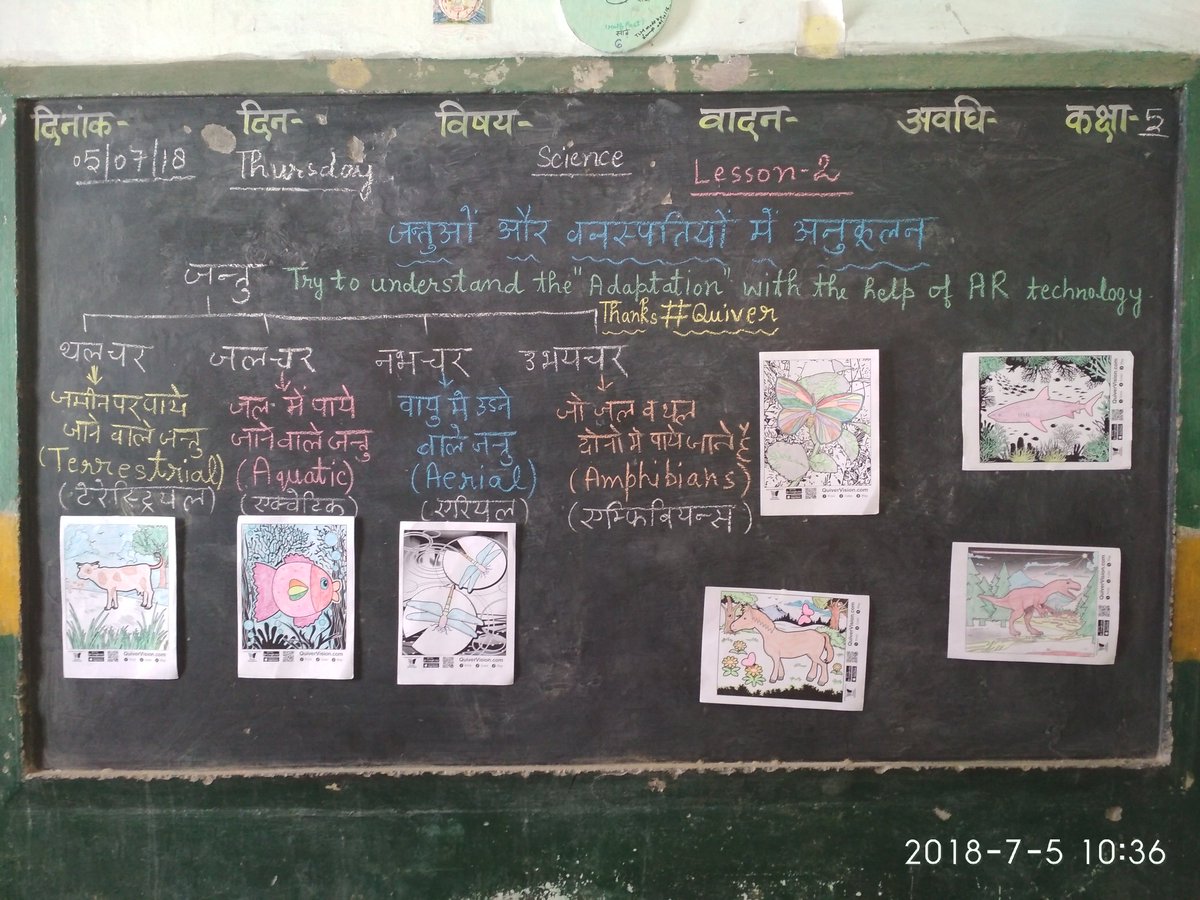 दिनांक- दिन- विषय- वादन- अवधि- कक्षा- 5
05/07/18 Thursday Science Lesson-2
जन्तुओं और वनस्पतियों में अनुकूलन
जन्तु Try to understand the "Adaptation" with the help of AR technology.
Thanks #Quiver
थलचर जलचर नभचर उभयचर
जमीन पर पाये जल में पाये वायु में उडने जो जल व थल
जाने वाले जन्तु जाने वाले जन्तु वाले जन्तु दोनो मे पाये जाते है
(Terrestrial) (Aquatic) (Aerial) (Amphibians)
(टेरेस्ट्रियल) (एक्वेटिक) (एरियल) (एम्फिबियन्स)
QuiverVision.com
QuiverVision.com
QuiverVision.com
QuiverVision.com
QuiverVision.com
QuiverVision.com
QuiverVision.com
2018-7-5 10:36